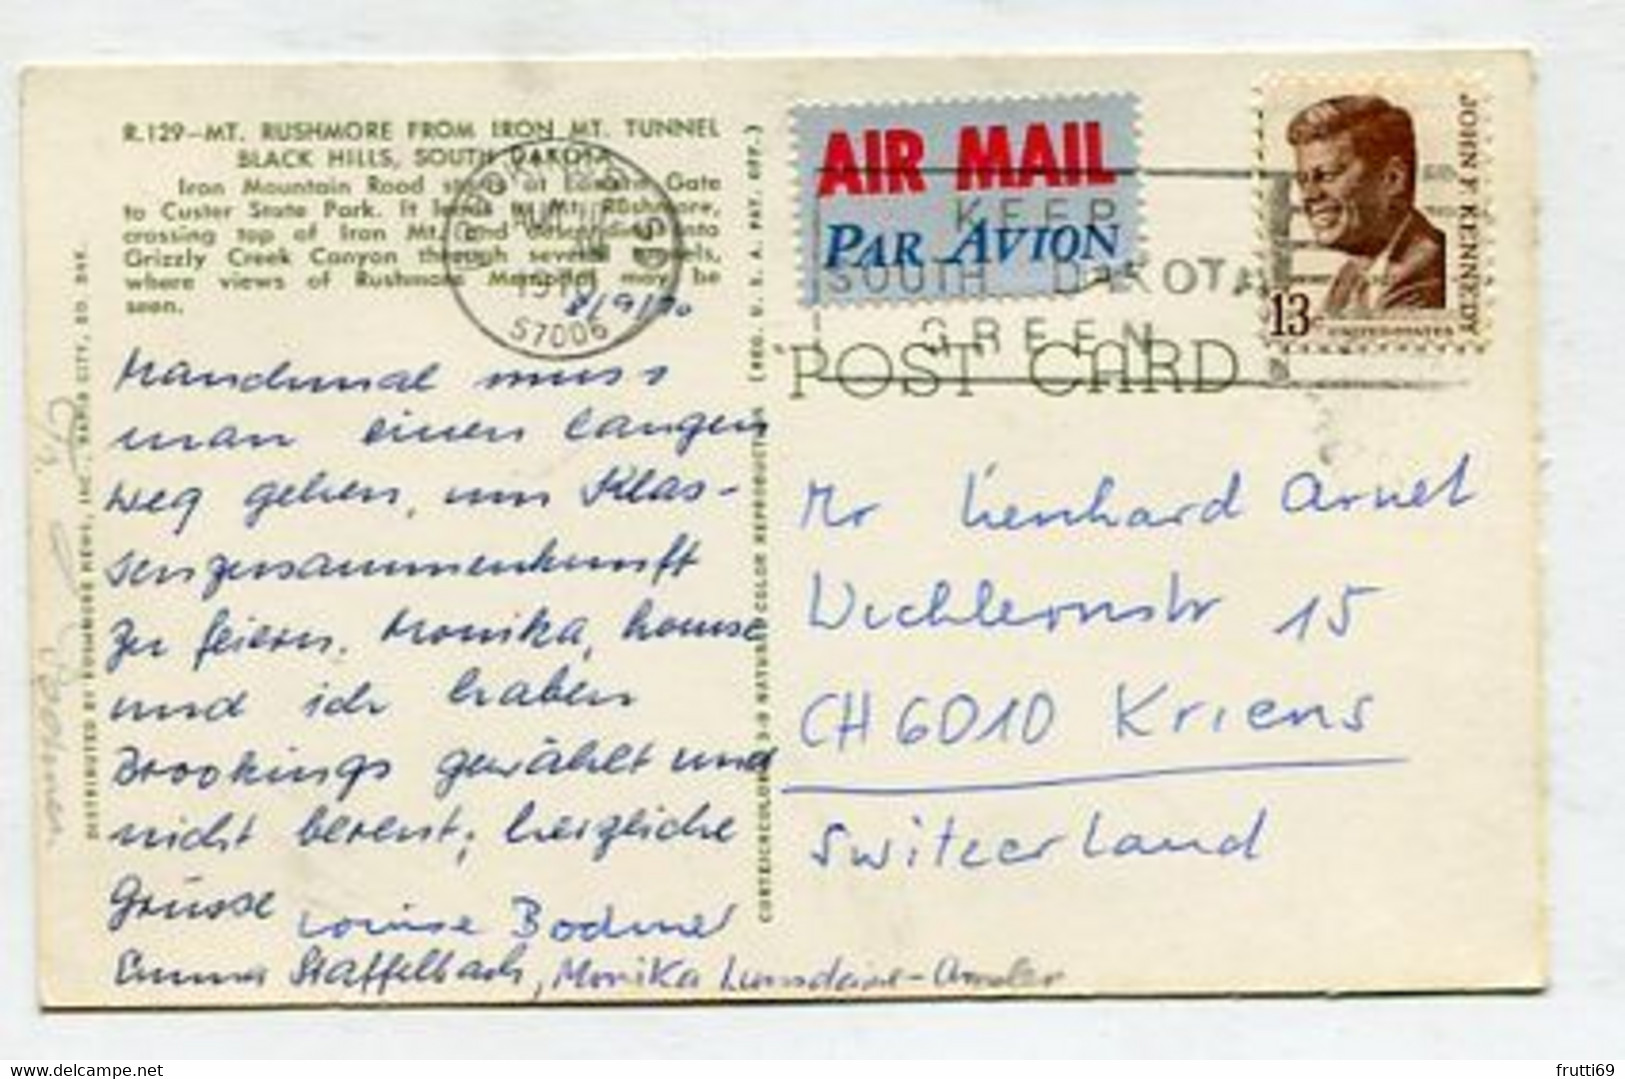 R.129—MT. RUSHMORE FROM IRON MT. TUNNEL
BLACK HILLS, SOUTH DAKOTA
Iron Mountain Road starts at Eastern Gate
to Custer State Park. It leads to Mt. Rushmore,
crossing top of Iron Mt. and descending into
Grizzly Creek Canyon through several tunnels,
where views of Rushmore Memorial may be
seen.
8/9/70
57006
Manchmal muss
man einen langen
Weg gehen, um Klas-
senzusammenkunft
zu feiern. Monika, Louise
und ich haben
Brookings gewählt und
nicht bereut; herzliche
Grüsse Louise Bodmer
Emma Staffelbach, Monika Lumsdaine-
DISTRIBUTED BY RUSHMORE NEWS, INC., RAPID CITY, SO. DAK.
CURTEICHCOLOR 3-D NATURAL COLOR REPRODUCTION (REG. U. S. A. PAT. OFF.)
AIR MAIL
PAR AVION
KEEP
SOUTH DAKOTA
GREEN
POST CARD
JOHN F. KENNEDY
13c UNITED STATES
Mr Lienhard Arnet
Wichlernstr 15
CH 6010 Kriens
Switzerland
frutti69
delcampe.net